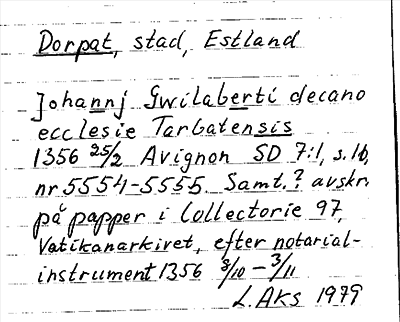 Dorpat, stad, Estland
Johannj Gwilaberti decano
ecclesie Tarbatensis
1356 25/2 Avignon SD 7:1, s. 16,
nr 5554-5555. Samt.? avskr.
på papper i Collectorie 97,
Vatikanarkivet, efter notarial-
instrument 1356 3/10 - 3/11
L. Aks 1979